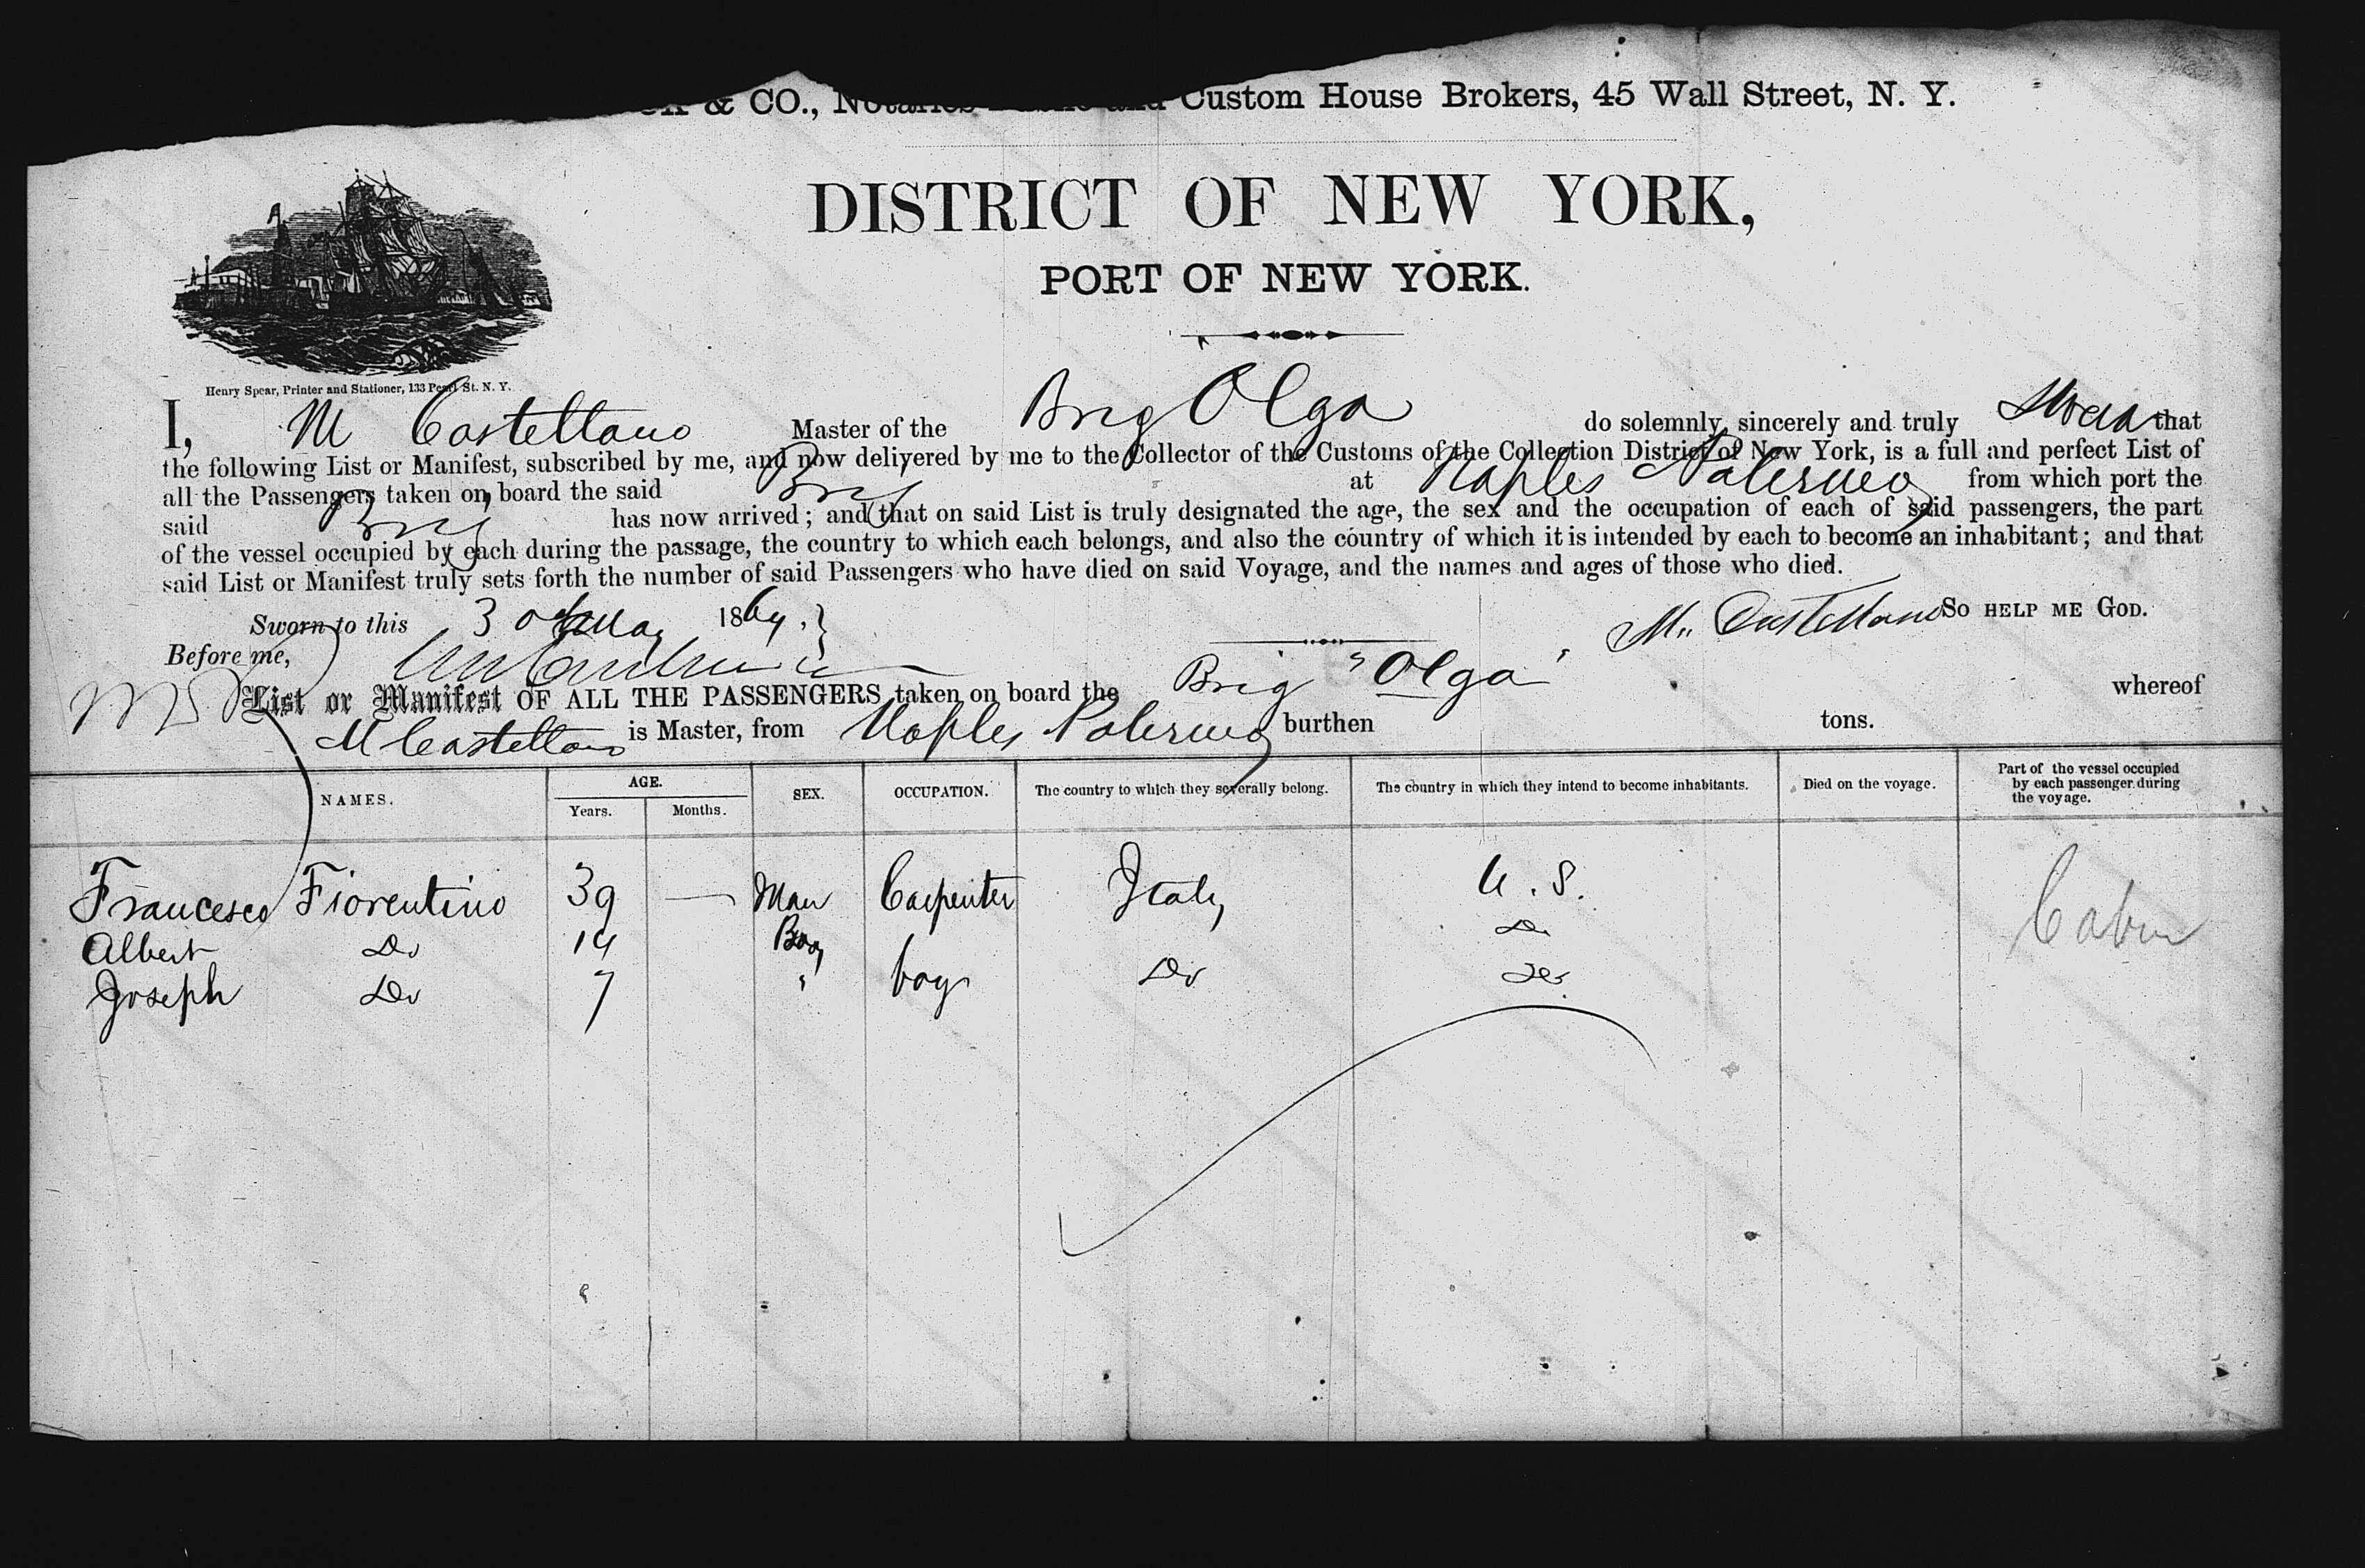 & CO., Notaries Public and Custom House Brokers, 45 Wall Street, N. Y.
DISTRICT OF NEW YORK,
PORT OF NEW YORK.
Henry Spear, Printer and Stationer, 133 Pearl St. N. Y.
I, M Castellano Master of the Brig Olga do solemnly, sincerely and truly Swear that
the following List or Manifest, subscribed by me, and now delivered by me to the Collector of the Customs of the Collection District of New York, is a full and perfect List of
all the Passengers taken on board the said Brig at Naples Palermo from which port the
said Brig has now arrived; and that on said List is truly designated the age, the sex and the occupation of each of said passengers, the part
of the vessel occupied by each during the passage, the country to which each belongs, and also the country of which it is intended by each to become an inhabitant; and that
said List or Manifest truly sets forth the number of said Passengers who have died on said Voyage, and the names and ages of those who died.
Sworn to this 3 May 1864. M. Castellano So HELP ME GOD.
Before me,
List or Manifest OF ALL THE PASSENGERS taken on board the Brig "Olga" whereof
M Castellano is Master, from Naples Palermo burthen tons.
NAMES. AGE. SEX. OCCUPATION. The country to which they severally belong. The country in which they intend to become inhabitants. Died on the voyage. Part of the vessel occupied by each passenger during the voyage.
Years. Months.
Francesco Fiorentino 39 — Man Carpenter Italy U.S. Cabin
Albert Do 14 Boy Do
Joseph Do 7 " boy Do Do